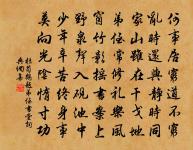 何事居窮道不窮
亂時還與靜時同
家山雖在干戈地
弟侄常修禮樂風
窗竹影搖書案上
野泉聲入硯池中
少年辛苦終身事
莫向光陰惰寸功
杜荀鶴題弟侄書堂